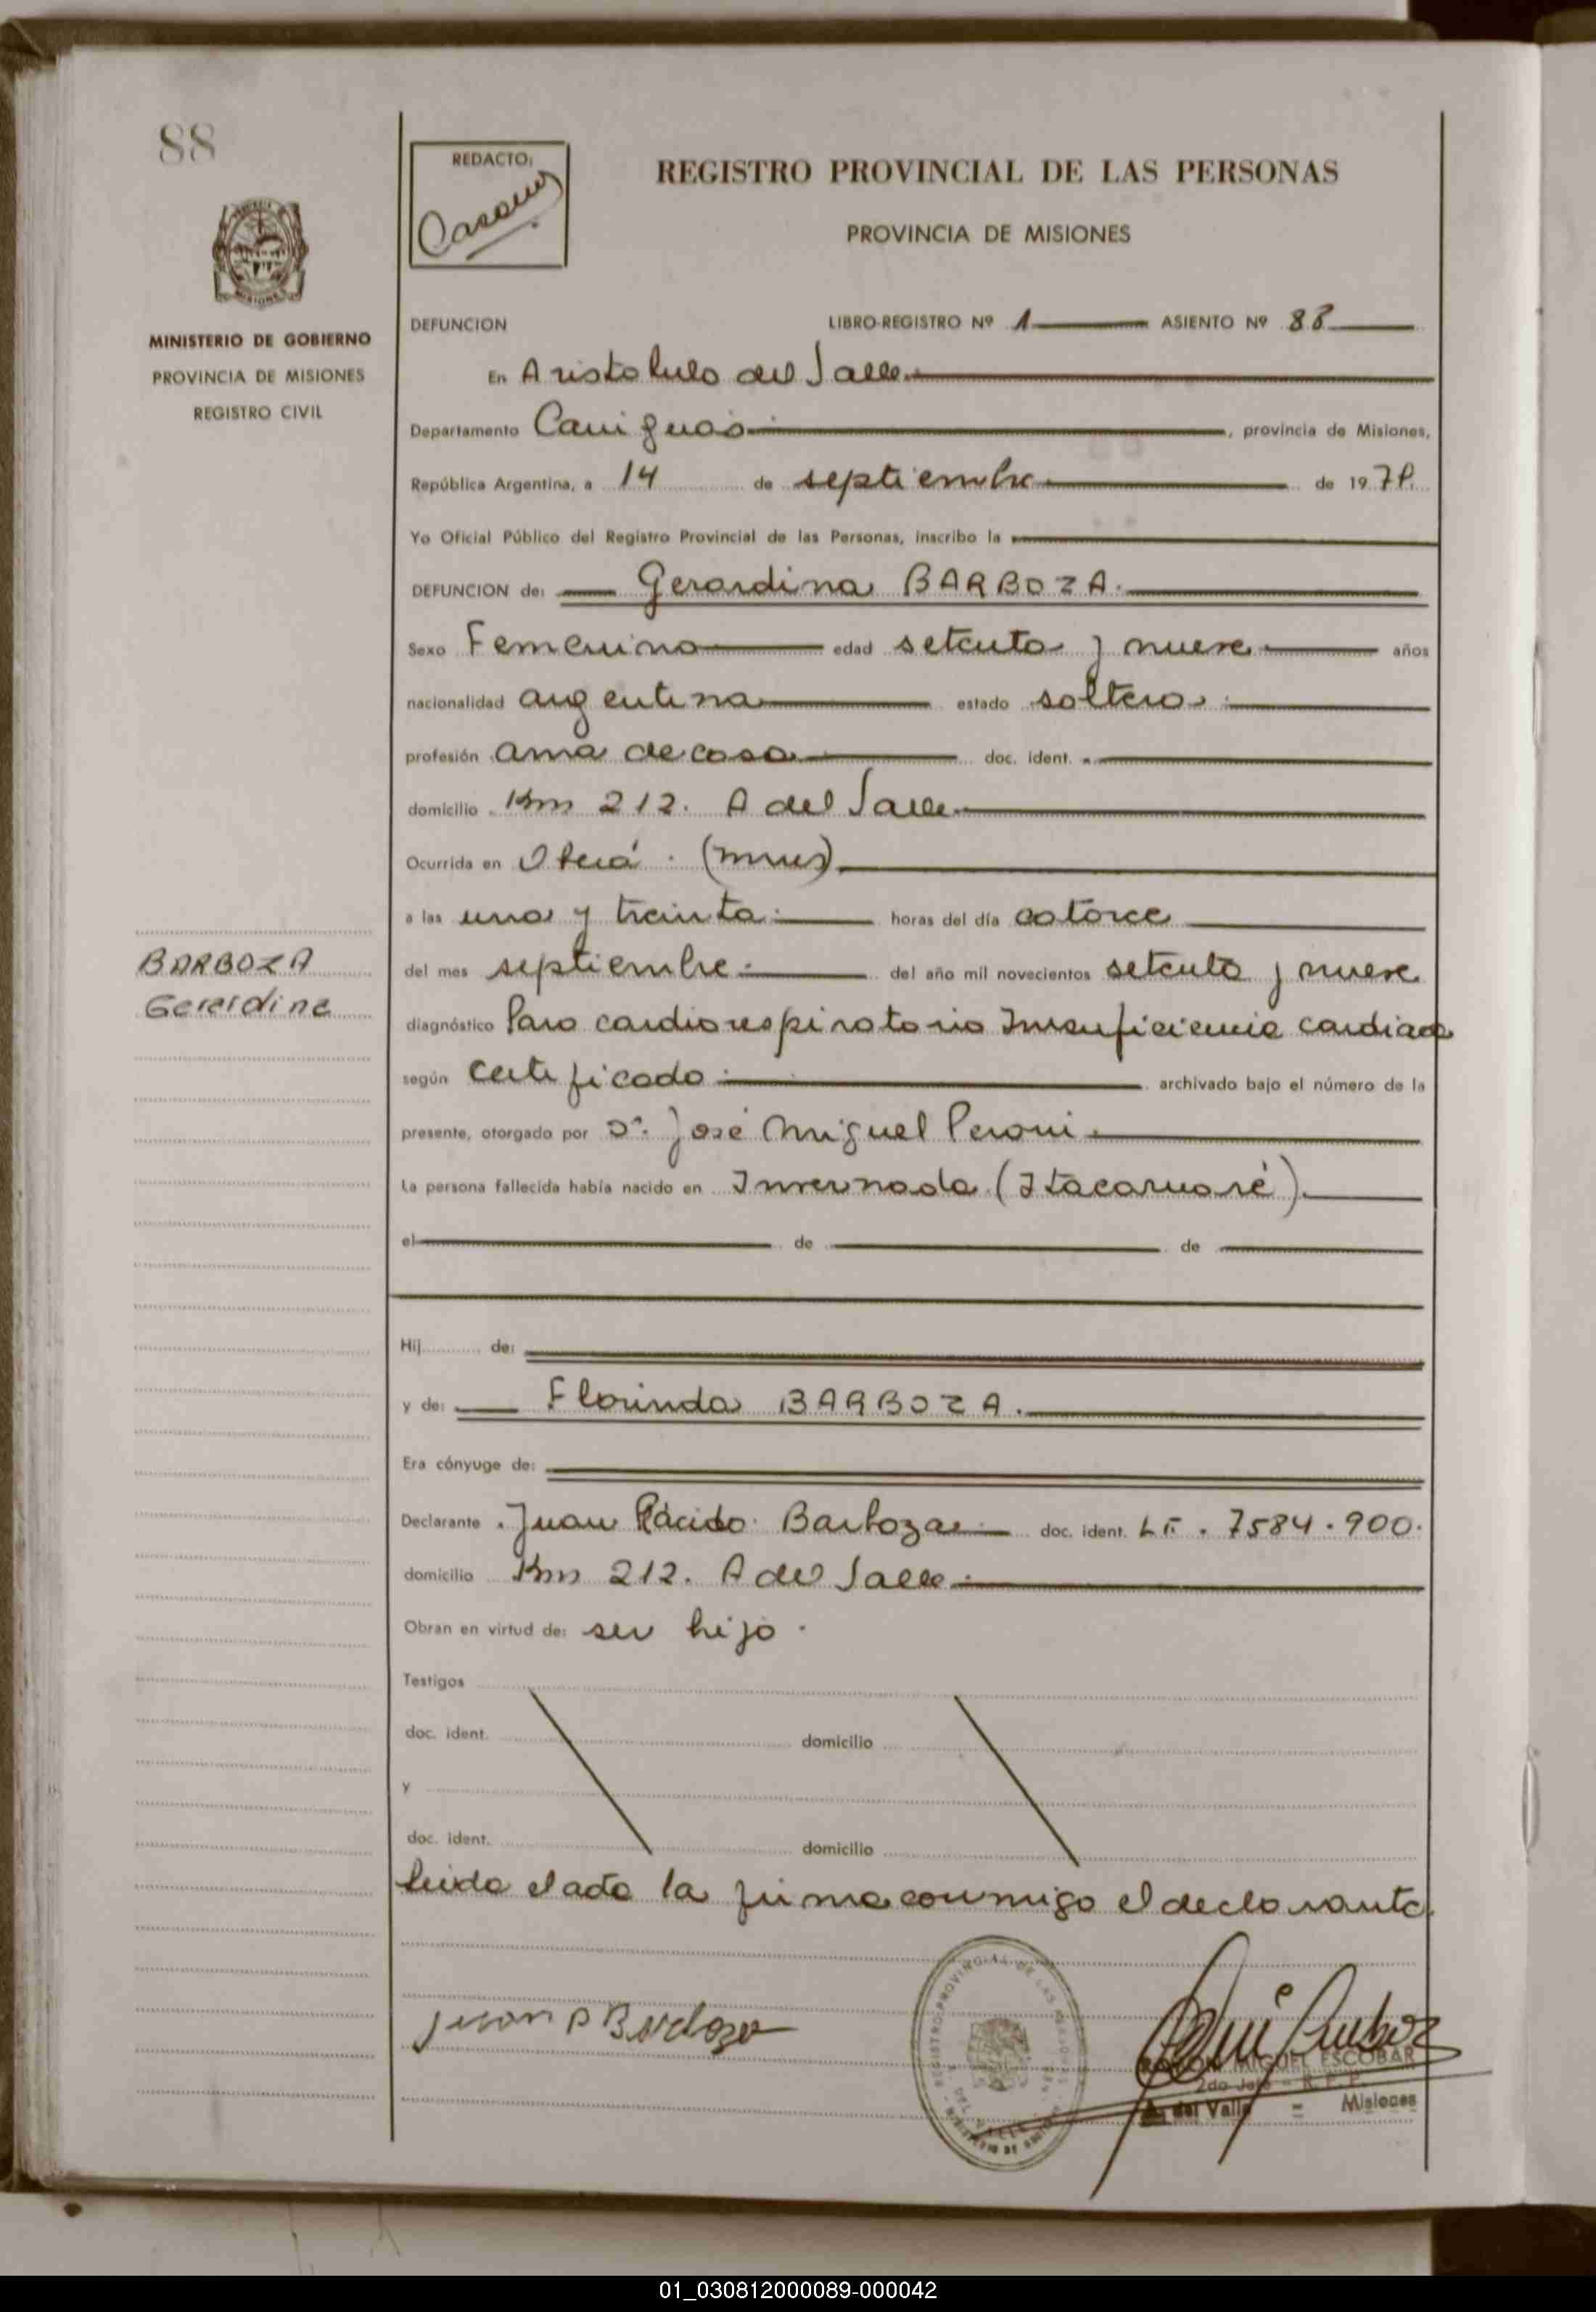 88
REDACTO:
REGISTRO PROVINCIAL DE LAS PERSONAS
PROVINCIA DE MISIONES
MINISTERIO DE GOBIERNO
PROVINCIA DE MISIONES
REGISTRO CIVIL
DEFUNCION LIBRO-REGISTRO Nº 1 ASIENTO Nº 88
En Aristobulo del Valle
Departamento Cainguás, provincia de Misiones,
República Argentina, a 14 de septiembre de 19
Yo Oficial Público del Registro Provincial de las Personas, inscribo la
DEFUNCION de: Gerardina BARBOZA.
Sexo Femenino edad setenta y nueve años
nacionalidad argentina estado soltera
profesión ama de casa doc. ident.
domicilio Km 212. A del Valle
Ocurrida en Oberá. (mnes)
a las una y treinta horas del día catorce
del mes septiembre del año mil novecientos setenta y nueve
BARBOZA
Gerardina
diagnóstico Paro cardiorespiratorio Insuficiencia cardiaca
según certificado archivado bajo el número de la
presente, otorgado por Dr. José Miguel Peroni
La persona fallecida había nacido en Invernada (Itacaruaré)
el de de
Hij de:
y de: Florinda BARBOZA.
Era cónyuge de:
Declarante Juan Plácido Barboza doc. ident. L.E. 7584.900.
domicilio Km 212. A del Valle
Obran en virtud de: ser hijo.
Testigos
doc. ident. domicilio
y
doc. ident. domicilio
leida el acta la firma conmigo el declarante
Juan P Barboza
REGISTRO PROVINCIAL DE LAS PERSONAS
RAMON MIGUEL ESCOBAR
2do Jefe - R. P. P.
A. del Valle = Misiones
01_030812000089-000042